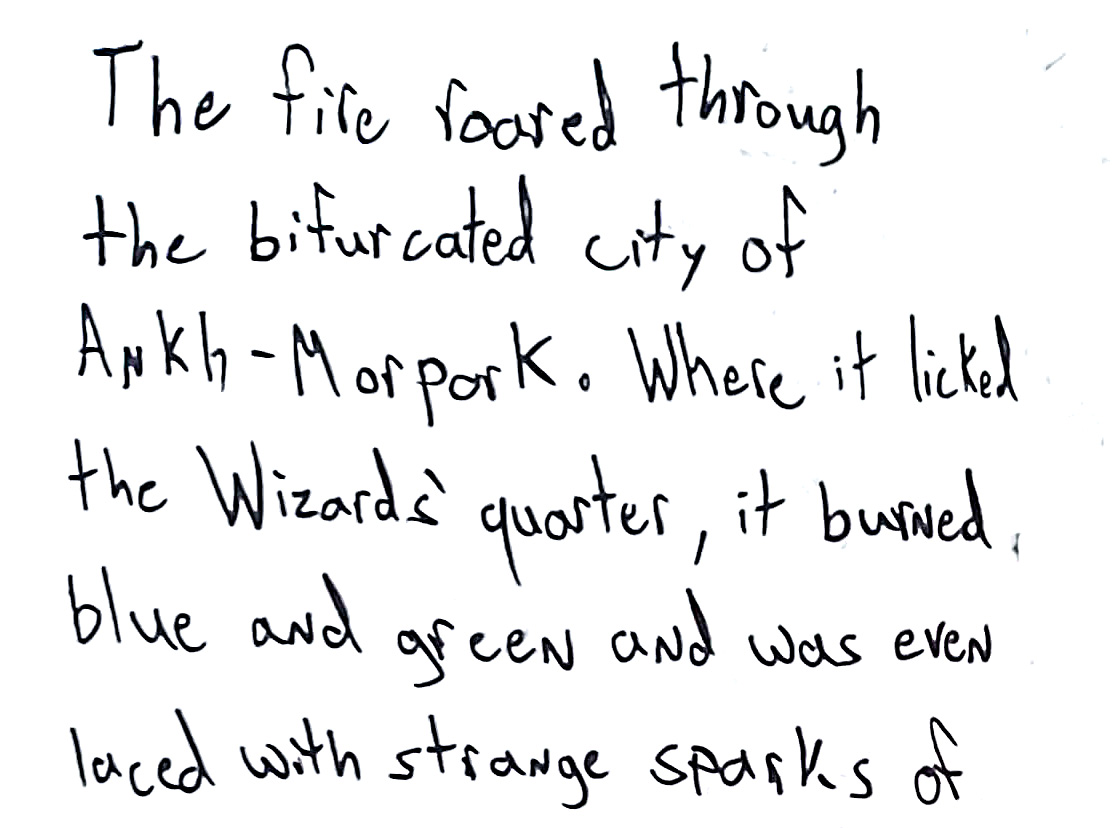 The fire roared through
the bifurcated city of
Ankh-Morpork. Where it licked
the Wizards' quarter, it burned
blue and green and was even
laced with strange sparks of